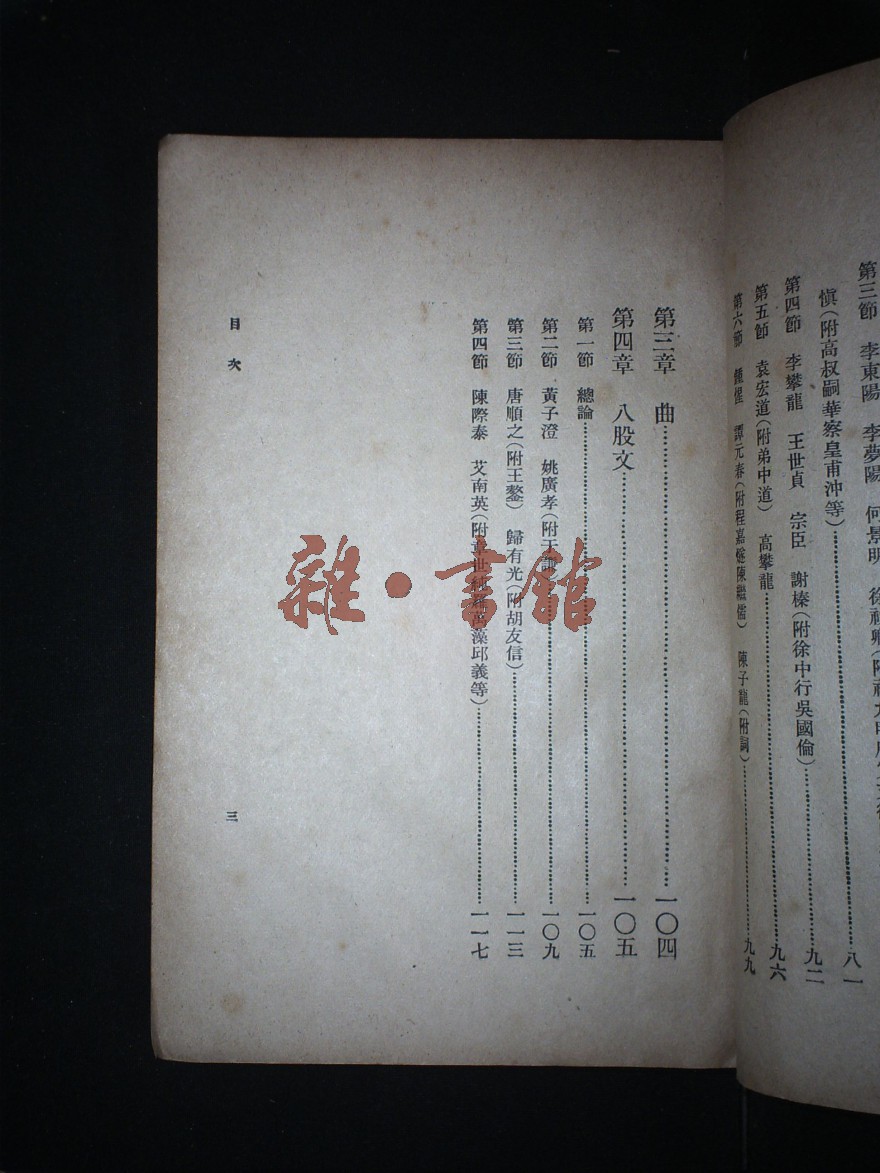 第三節　李東陽　李夢陽　何景明　徐禎卿(附祝允明唐
慎(附高叔嗣華察皇甫沖等)……八一
第四節　李攀龍　王世貞　宗臣　謝榛(附徐中行吳國倫)……九二
第五節　袁宏道(附弟中道)　高攀龍……九六
第六節　鍾惺　譚元春(附程嘉燧陳繼儒)　陳子龍(附詞)……九九
第三章　曲……一〇四
第四章　八股文……一〇五
第一節　總論……一〇五
第二節　黃子澄　姚廣孝(附于謙)……一〇九
第三節　唐順之(附王鏊)　歸有光(附胡友信)……一一三
第四節　陳際泰　艾南英(附章世純羅萬藻邱義等)……一一七
目次
三
雜·書館